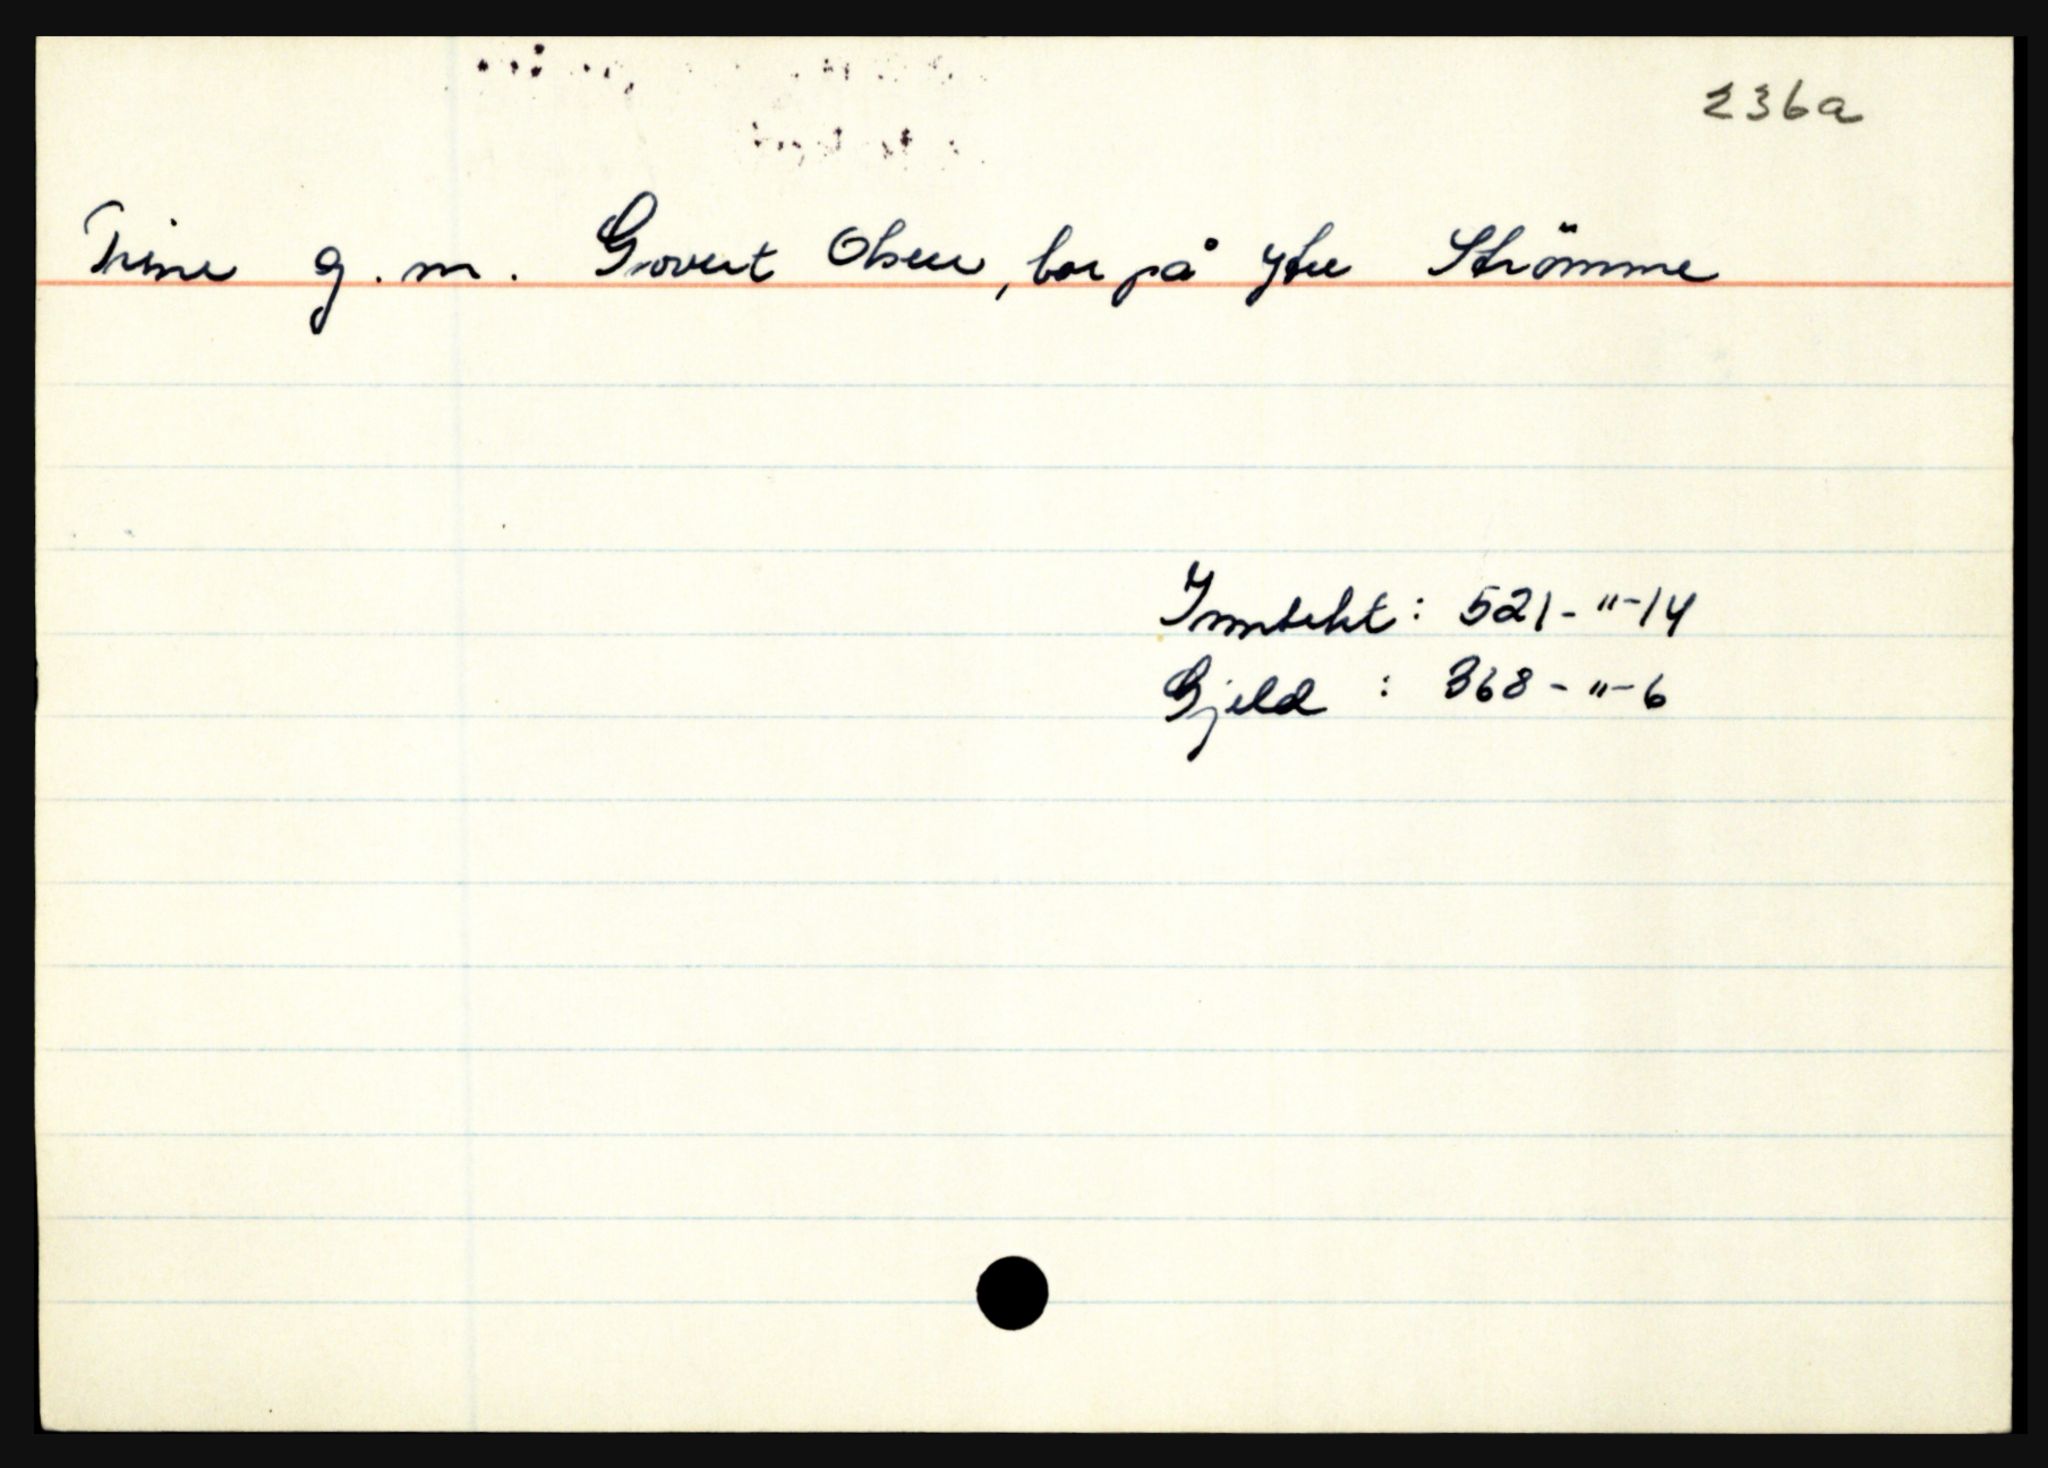 236a
Trine g. m. Govert Olsen, bor på ytre Strömme
Inntekt : 521 - " - 14
Gjeld : 368 - " - 6